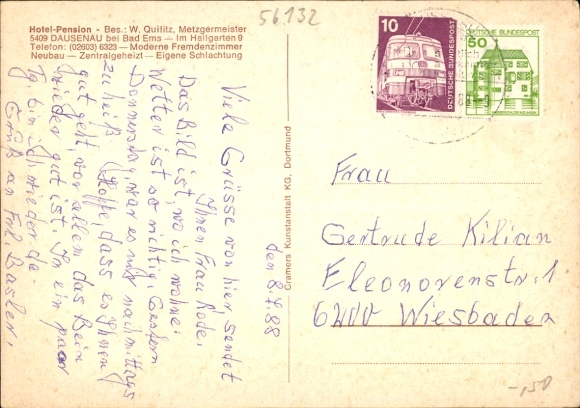 56132
Hotel-Pension - Bes.: W. Quilitz, Metzgermeister
5409 DAUSENAU bei Bad Ems — Im Hallgarten 9
Telefon: (02603) 6323 — Moderne Fremdenzimmer
Neubau — Zentralgeheizt — Eigene Schlachtung
10
DEUTSCHE BUNDESPOST
DEUTSCHE BUNDESPOST
50
den 8.7.88
Viele Grüsse von hier sendet
Ihnen Frau Rode.
Das Bild ist, wo ich wohne.
Wetter ist so richtig. Gestern
Donnerstag war es mir nachmittags
zu heiß. Hoffe, dass es Ihnen
gut geht, vor allem das Bein
wieder gut ist. In ein paar
Tg bin ich wieder da.
Gruß an Frl. Basler.
Cramers Kunstanstalt KG, Dortmund
Frau
Gertrude Kilian
Eleonorenstr. 1
6200 Wiesbaden
-,50